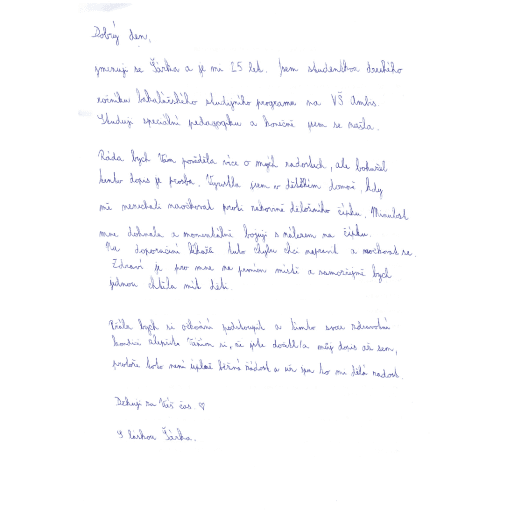 Dobrý den,
jmenuji se Šárka a je mi 25 let. Jsem studentkou druhého
ročníku bakalářského studijního programu na VŠ Ambis.
Studuji speciální pedagogiku a konečně jsem se našla.
Ráda bych Vám pověděla více o mých radostech, ale bohužel
tento dopis je prosba. Vyrostla jsem v dětském domově, kdy
mě nenechali naočkovat proti rakovině děložního čípku. Minulost
mne dohnala a momentálně bojuji s nálezem na čípku.
Na doporučení lékaře tuto chybu chci napravit a naočkovat se.
Zdraví je pro mne na prvním místě a samozřejmě bych
jednou chtěla mít děti.
Ráda bych si očkování podstoupila a tímto svou zdravotní
kondici zlepšila. Vážím si, že jste dočetl/a můj dopis až sem,
protože toto není úplně běžná žádost a už jen to mi dělá radost.
Děkuji za Váš čas. ♡
S láskou Šárka.